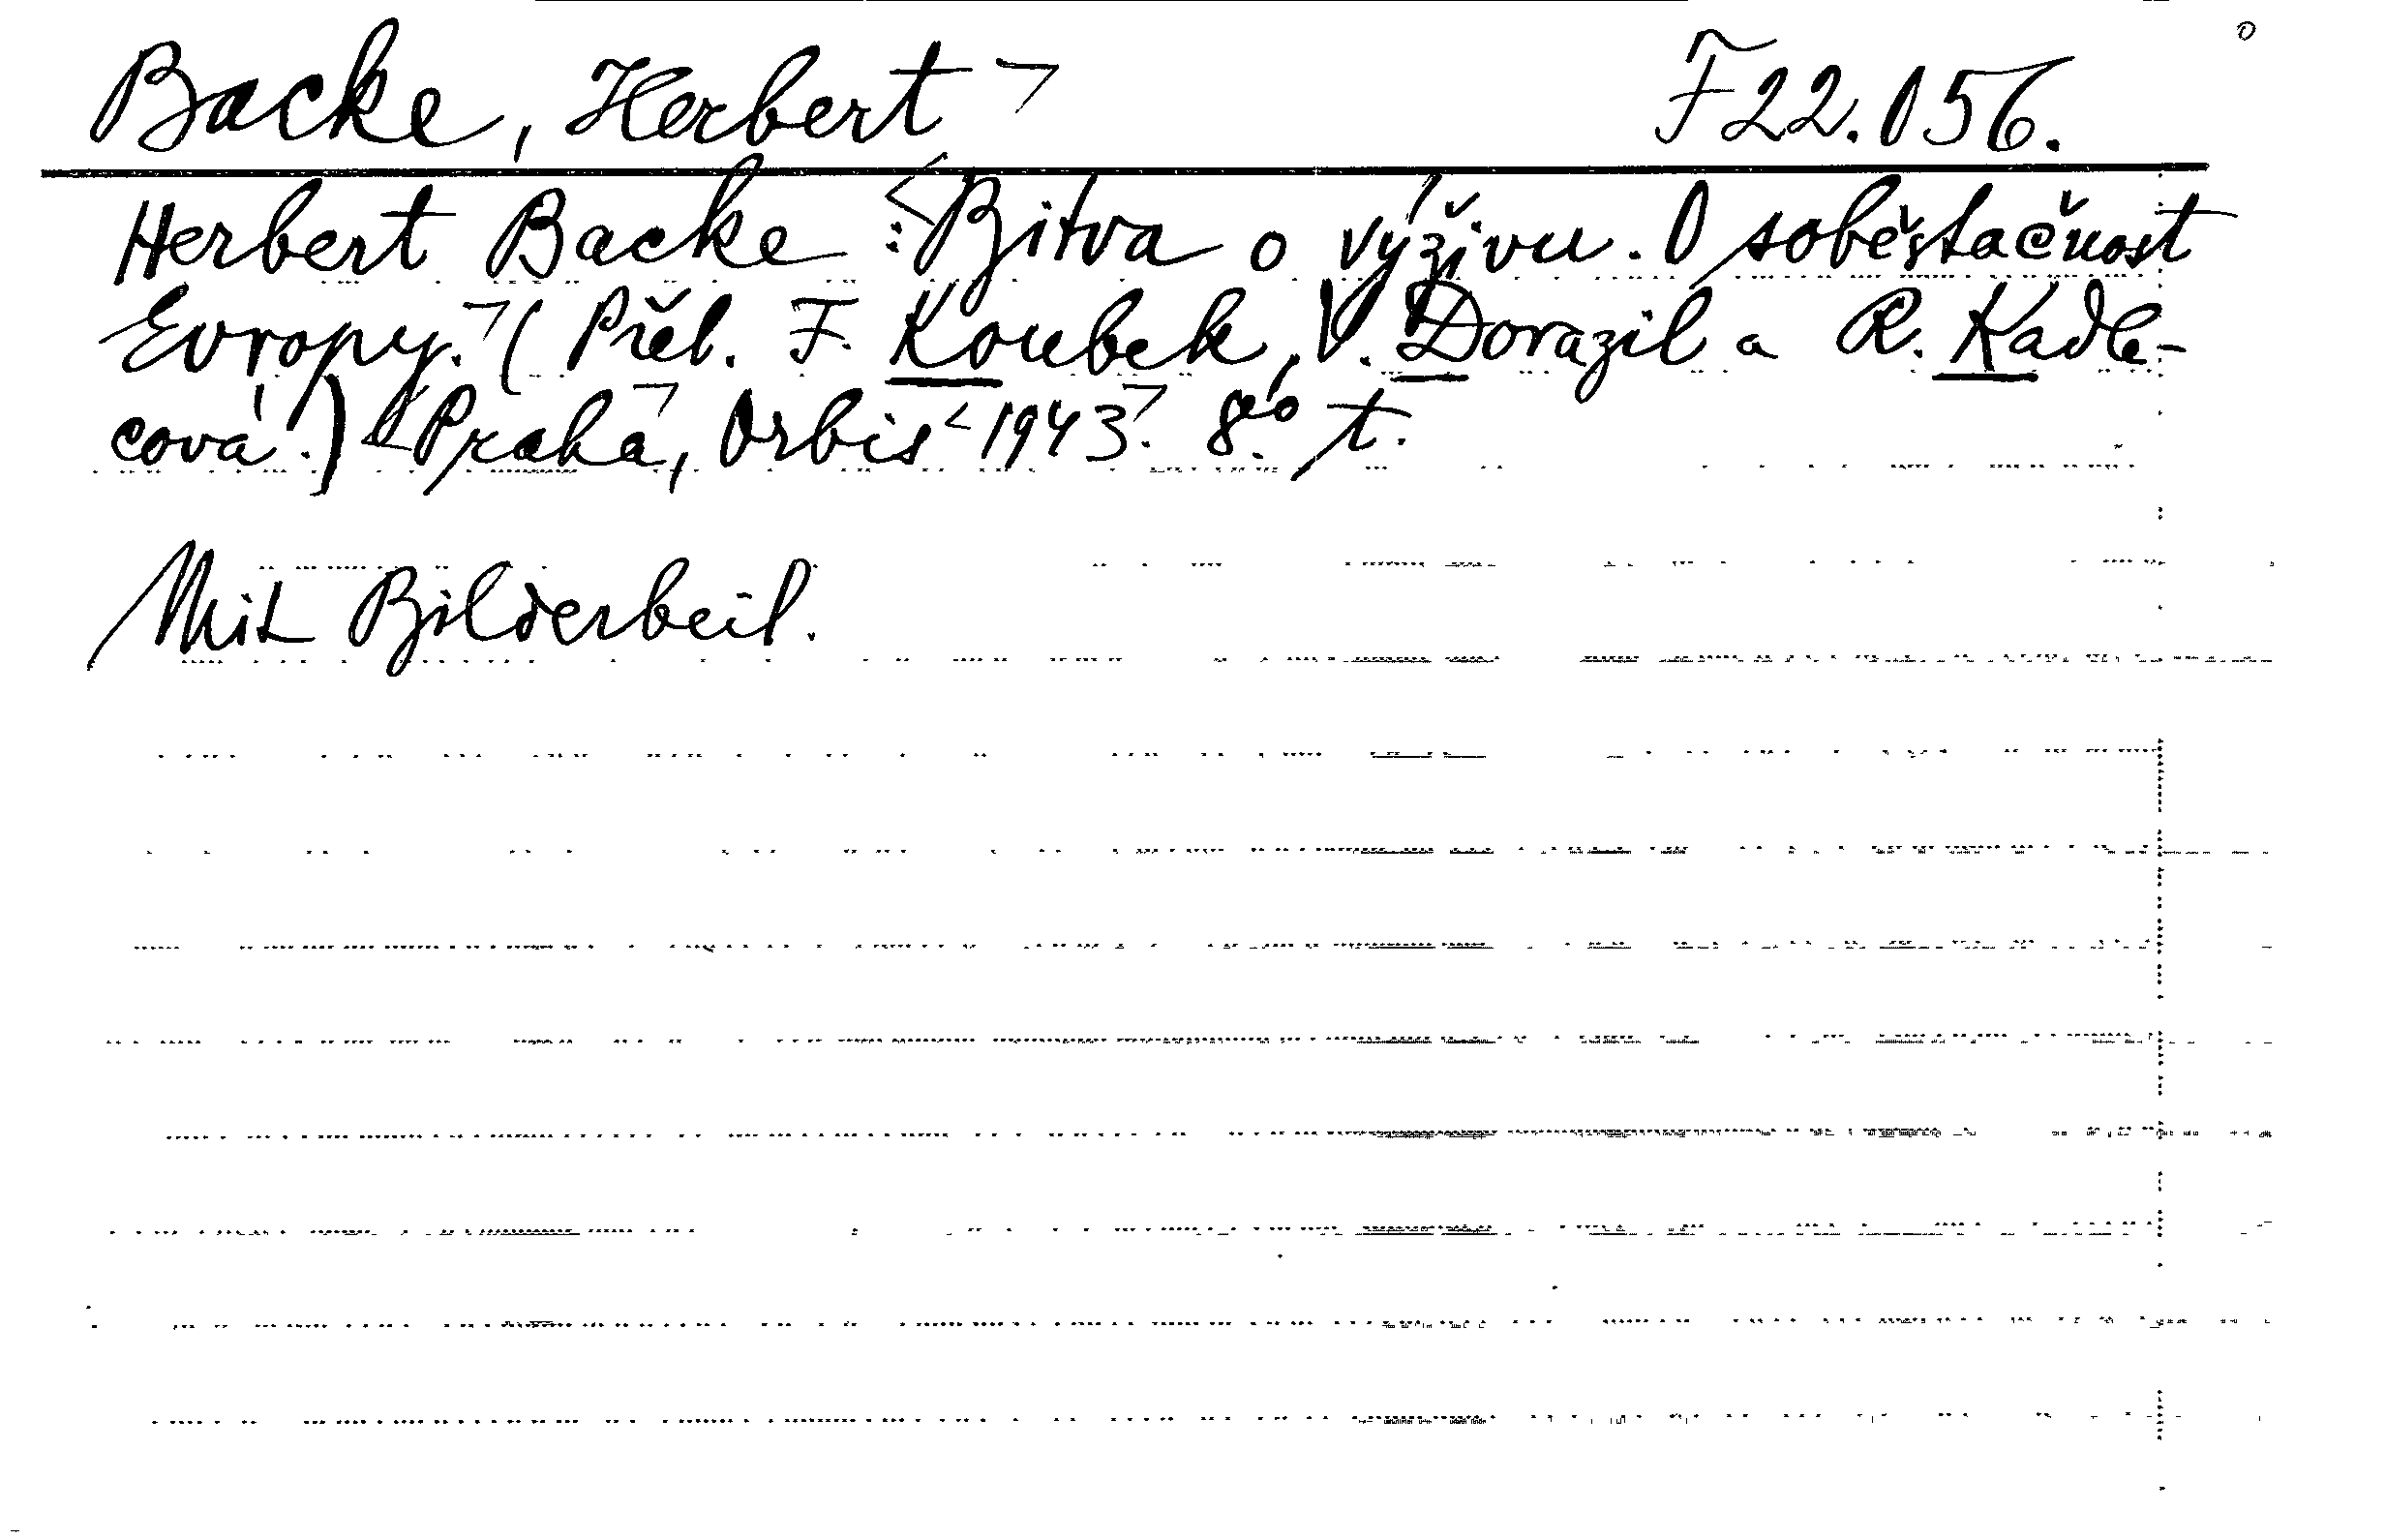 Backe, Herbert ¬ F 22.056.
Herbert Backe : <Bitva o výživu. O soběstačnost
Evropy.¬ (Přel. F. Koubek, V. Dorazil a R. Kadle-
cová.) <Praha¬, Orbis <1943¬. 8.° t.
Mit Bilderbeil.